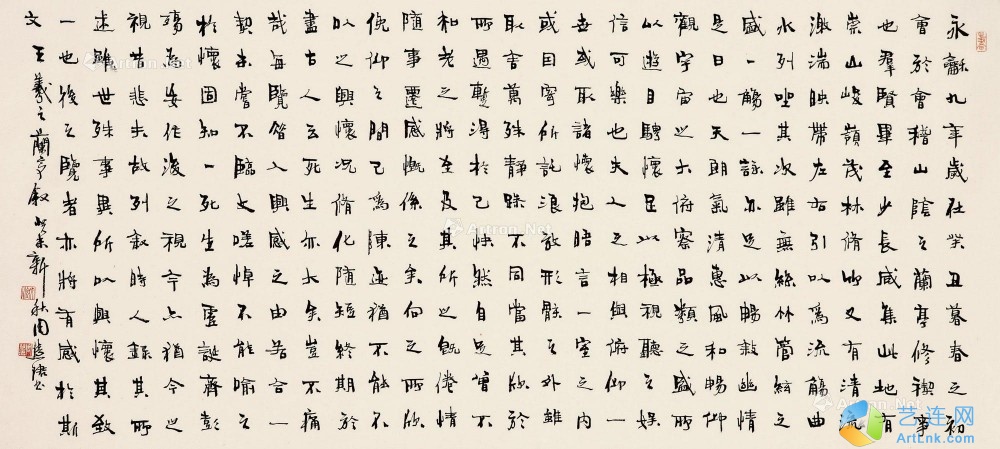 永龢九年歲在癸丑暮春之初
會於會稽山陰之蘭亭修禊事
也羣賢畢至少長咸集此地有
崇山峻嶺茂林脩竹又有清流
激湍映帶左右引以為流觴曲
水列坐其次雖無絲竹管絃之
盛一觴一詠亦足以暢敘幽情
是日也天朗氣清惠風和暢仰
觀宇宙之大俯察品類之盛所
以遊目騁懷足以極視聽之娛
信可樂也夫人之相與俯仰一
世或取諸懷抱晤言一室之內
或因寄所託浪放形骸之外雖
取舍萬殊靜躁不同當其欣於
所遇暫得於己快然自足曾不
和老之將至及其所之既倦情
隨事遷感慨係之矣向之所欣
俛仰之間已為陳迹猶不能不
以之興懷況脩化隨短終期於
盡古人云死生亦大矣豈不痛
哉每覽昔人興感之由若合一
契未嘗不臨文嗟悼不能喻之
於懷固知一死生為虛誕齊彭
殤為妄作後之視今亦猶今之
視昔悲夫故列敘時人錄其所
述雖世殊事異所以興懷其致
一也後之覽者亦將有感於斯
文 王羲之蘭亭敘 癸未新秋周
艺连网
ArtLnk.com